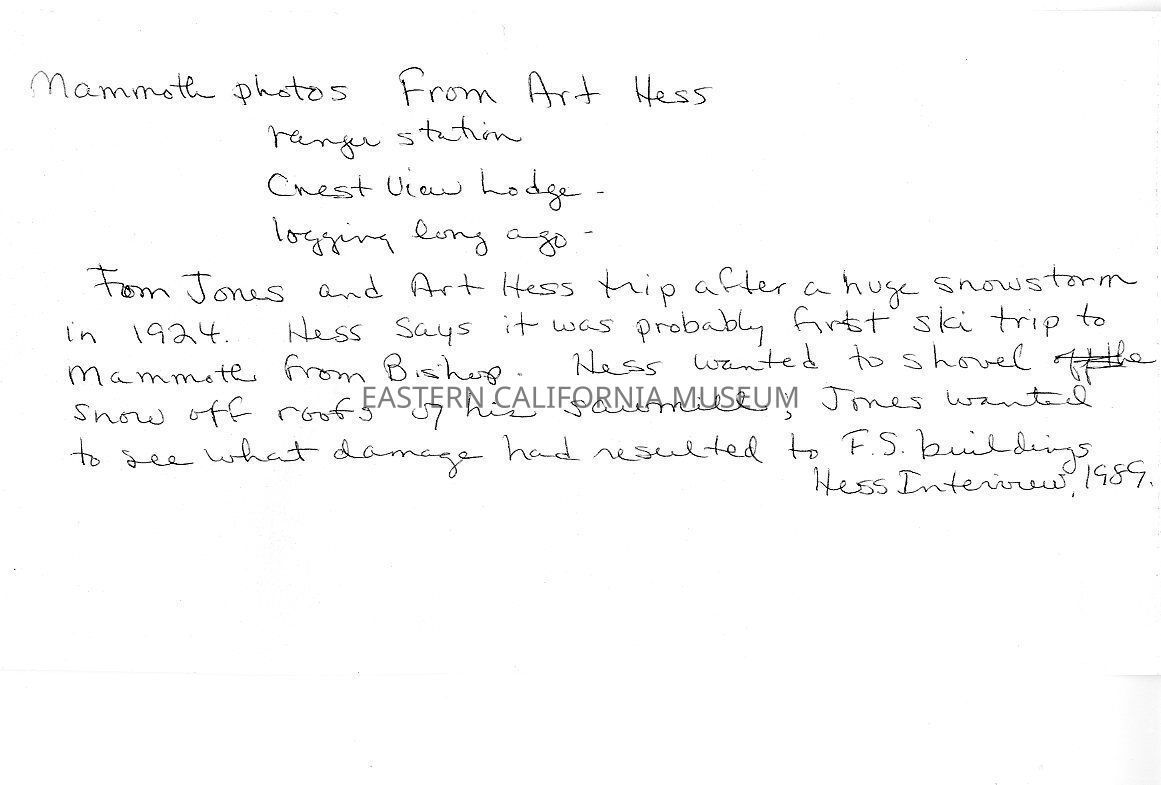 Mammoth photos From Art Hess
ranger station
Crest View Lodge -
logging long ago -
Tom Jones and Art Hess trip after a huge snowstorm
in 1924. Hess says it was probably first ski trip to
Mammoth from Bishop. Hess wanted to shovel off the
snow off roofs of his sawmill, Jones wanted
EASTERN CALIFORNIA MUSEUM
to see what damage had resulted to F.S. buildings
Hess Interview, 1989.